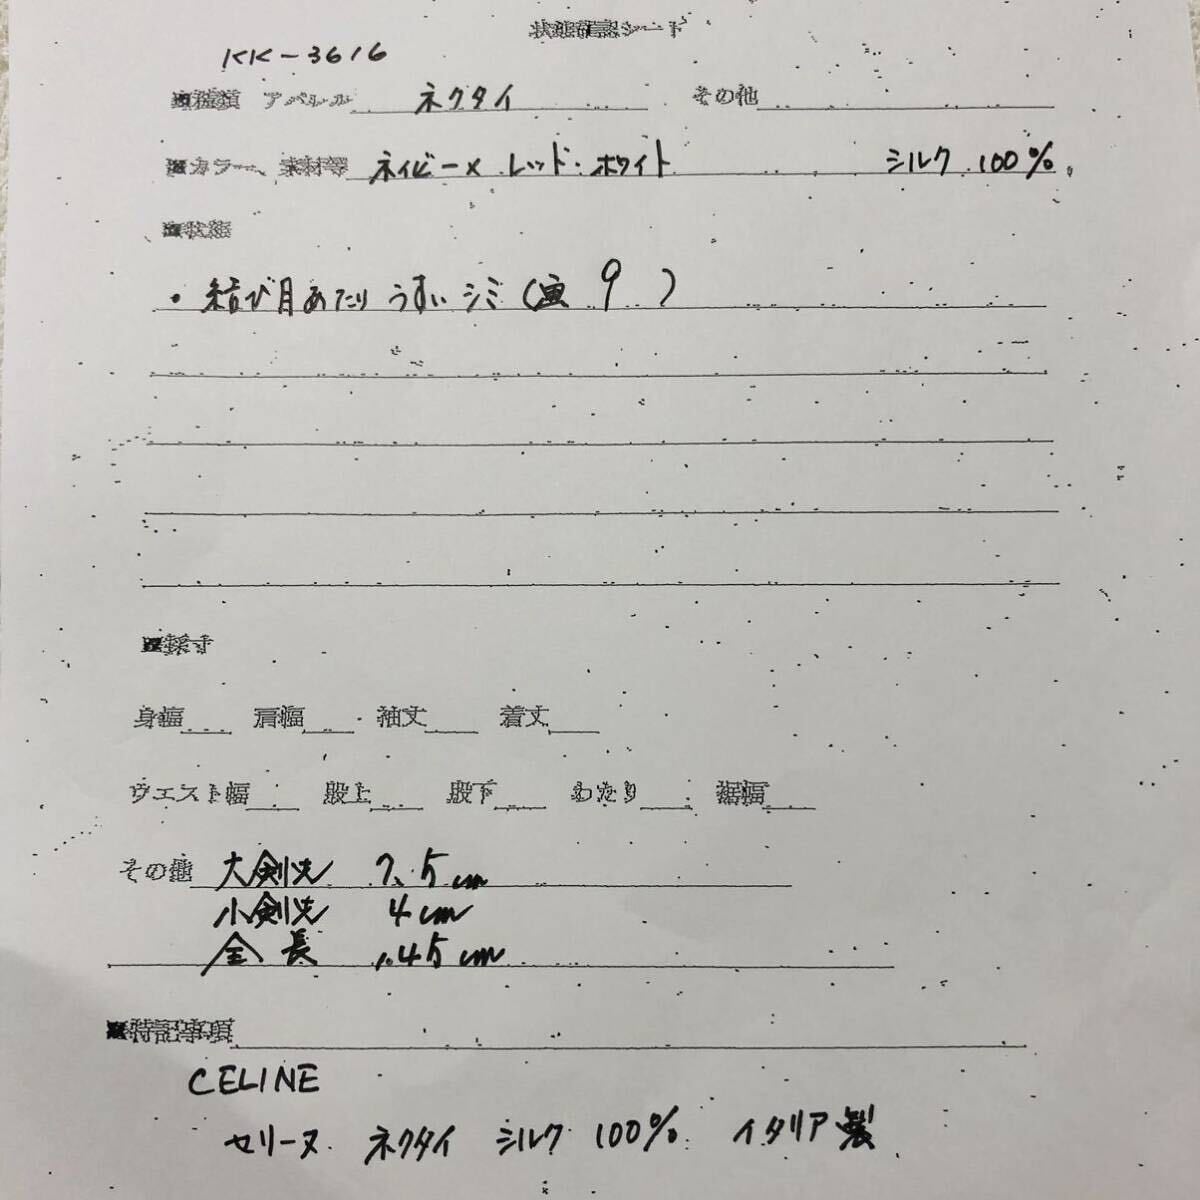 状態確認シート
KK-3616
■種類 アパレル ネクタイ その他
■カラー、素材等 ネイビー× レッド・ホワイト シルク 100%
■状態
・結び目あたり うすい シミ( 9 )
■採寸
身幅 肩幅 袖丈 着丈
ウエスト幅 股上 股下 わたり 裾幅
その他 大剣先 7.5cm
小剣先 4cm
全長 145cm
■特記事項
CELINE
セリーヌ ネクタイ シルク 100% イタリア製